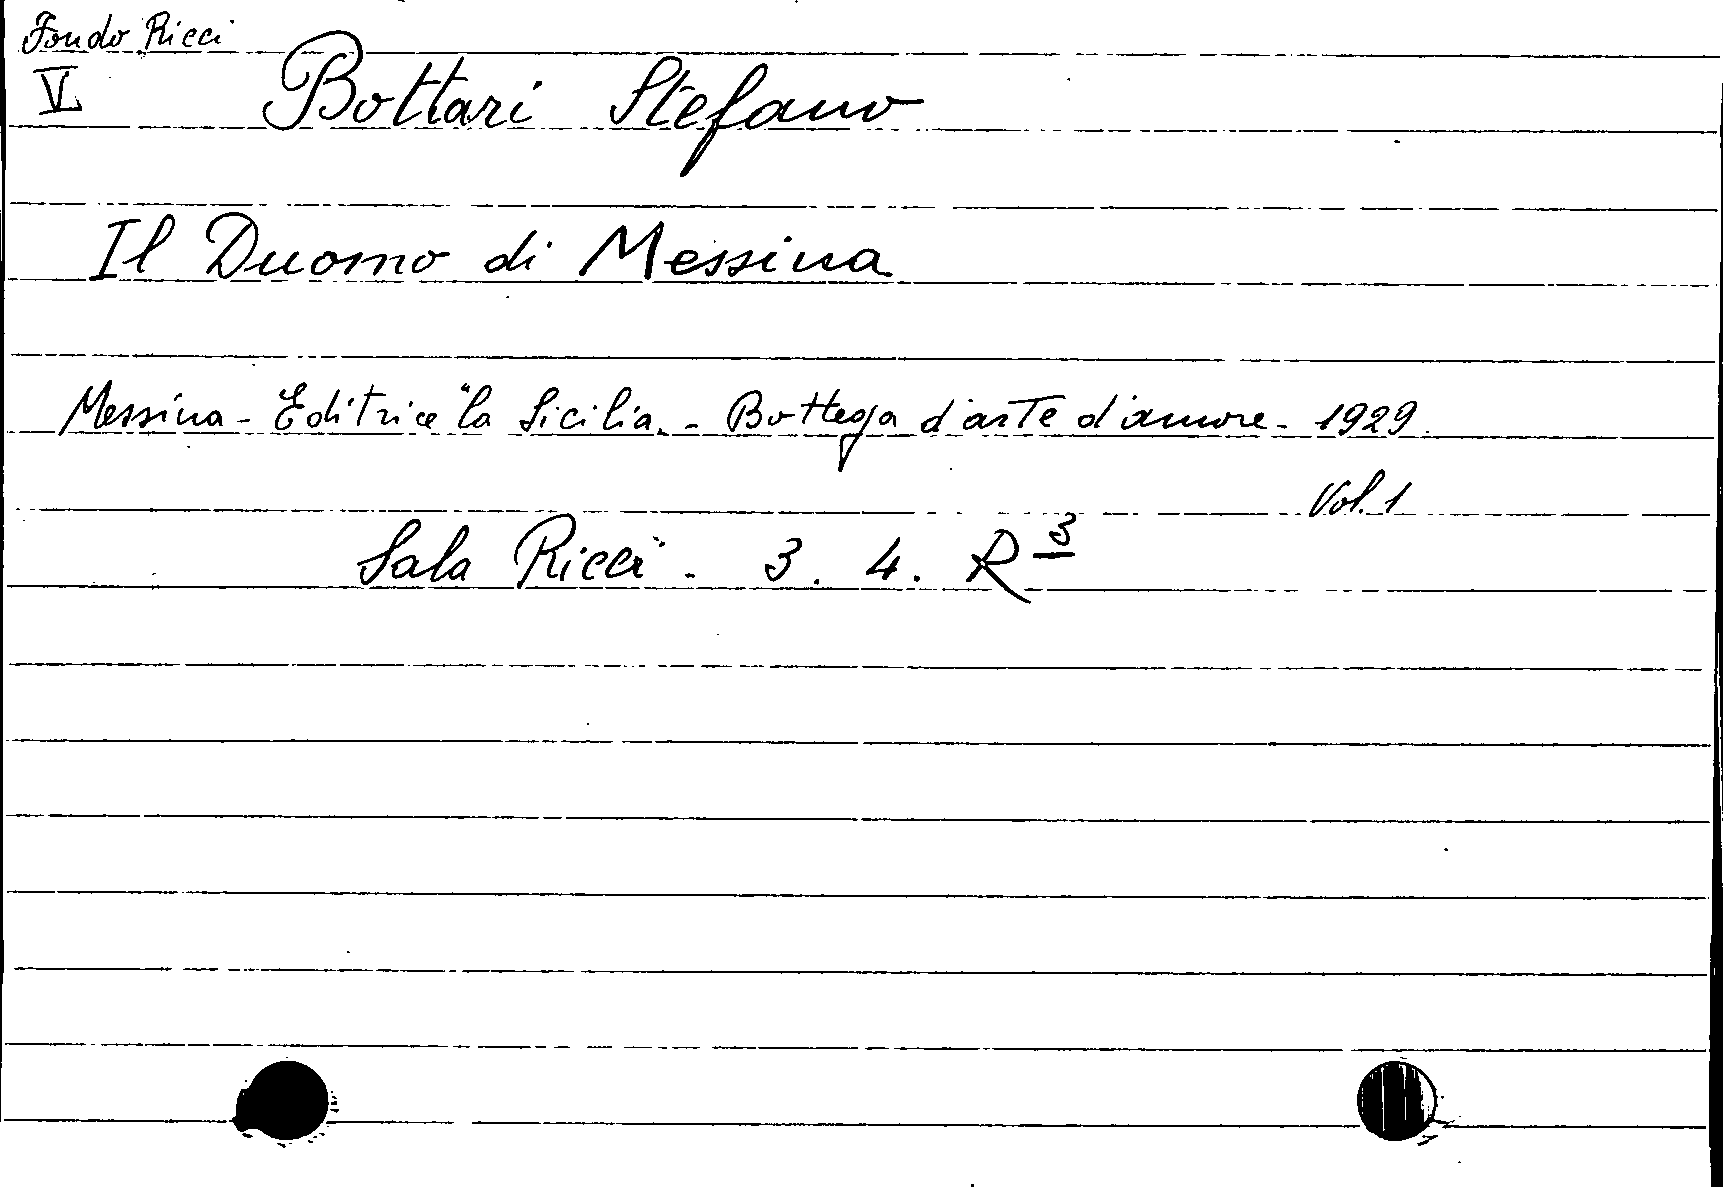 Fondo Ricci
V Bottari Stefano
Il Duomo di Messina
Messina - Editrice "la Sicilia. - Bottega d'arte d'amore - 1929.
Vol. 1
Sala Ricci - 3. 4. R 3